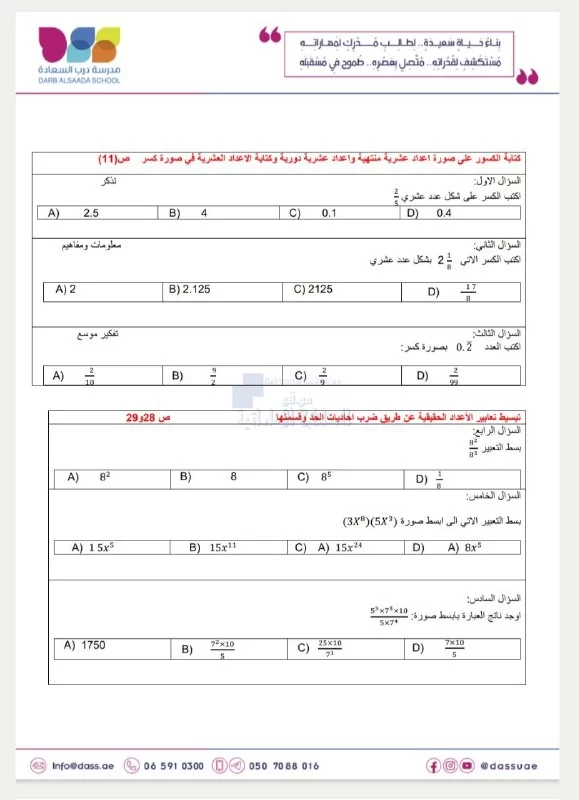 مدرسة درب السعادة
DARB ALSAADA SCHOOL
بناءُ حــيــاة سَعيـدَة.. لطـالــب مُــدْرِك لِمَهـاراتـــه
مُسْتَكْشِف لِقُدُراتِه.. مُتَّصِل بِعَصْرِه.. طَموح في مُسْتَقْبَلِه
كتابة الكسور على صورة اعداد عشرية منتهية واعداد عشرية دورية وكتابة الاعداد العشرية في صورة كسر ص(11)
السؤال الاول: تذكر
اكتب الكسر على شكل عدد عشري 2/5
A) 2.5 B) 4 C) 0.1 D) 0.4
السؤال الثاني: معلومات ومفاهيم
اكتب الكسر الاتي 2 1/8 بشكل عدد عشري
A) 2 B) 2.125 C) 2125 D) 17/8
السؤال الثالث: تفكير موسع
اكتب العدد 0.2̄ بصورة كسر:
A) 2/10 B) 9/2 C) 2/9 D) 2/99
تبسيط تعابير الأعداد الحقيقية عن طريق ضرب احاديات الحد وقسمتها ص 28و29
السؤال الرابع:
بسط التعبير 8²/8³
A) 8² B) 8 C) 8⁵ D) 1/8
السؤال الخامس:
بسط التعبير الاتي الى ابسط صورة (3X⁸)(5X³)
A) 1 5x⁵ B) 15x¹¹ C) A) 15x²⁴ D) A) 8x⁵
السؤال السادس:
اوجد ناتج العبارة بابسط صورة: 5³×7⁵×10/5×7⁴
A) 1750 B) 7²×10/5 C) 25×10/7¹ D) 7×10/5
Info@dass.ae 06 591 0300 050 70 88 016 @dassuae